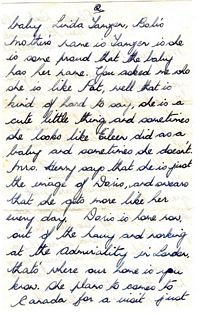 2
baby Linda Sawyer, Bob's
mothers name is Sawyer is she
is some proud that the baby
has her name. You asked me who
she is like Pat, well that is
kind of hard to say, she is a
cute little thing and sometimes
she looks like Eileen did as a
baby and sometimes she doesnt.
Mrs. Henry says that she is just
the image of Doris, and swears
that she gets more like her
every day. Doris is home now,
out of the navy and working
at the Admirality in London,
thats' where our home is you
know. She plans to come to
Canada for a visit just